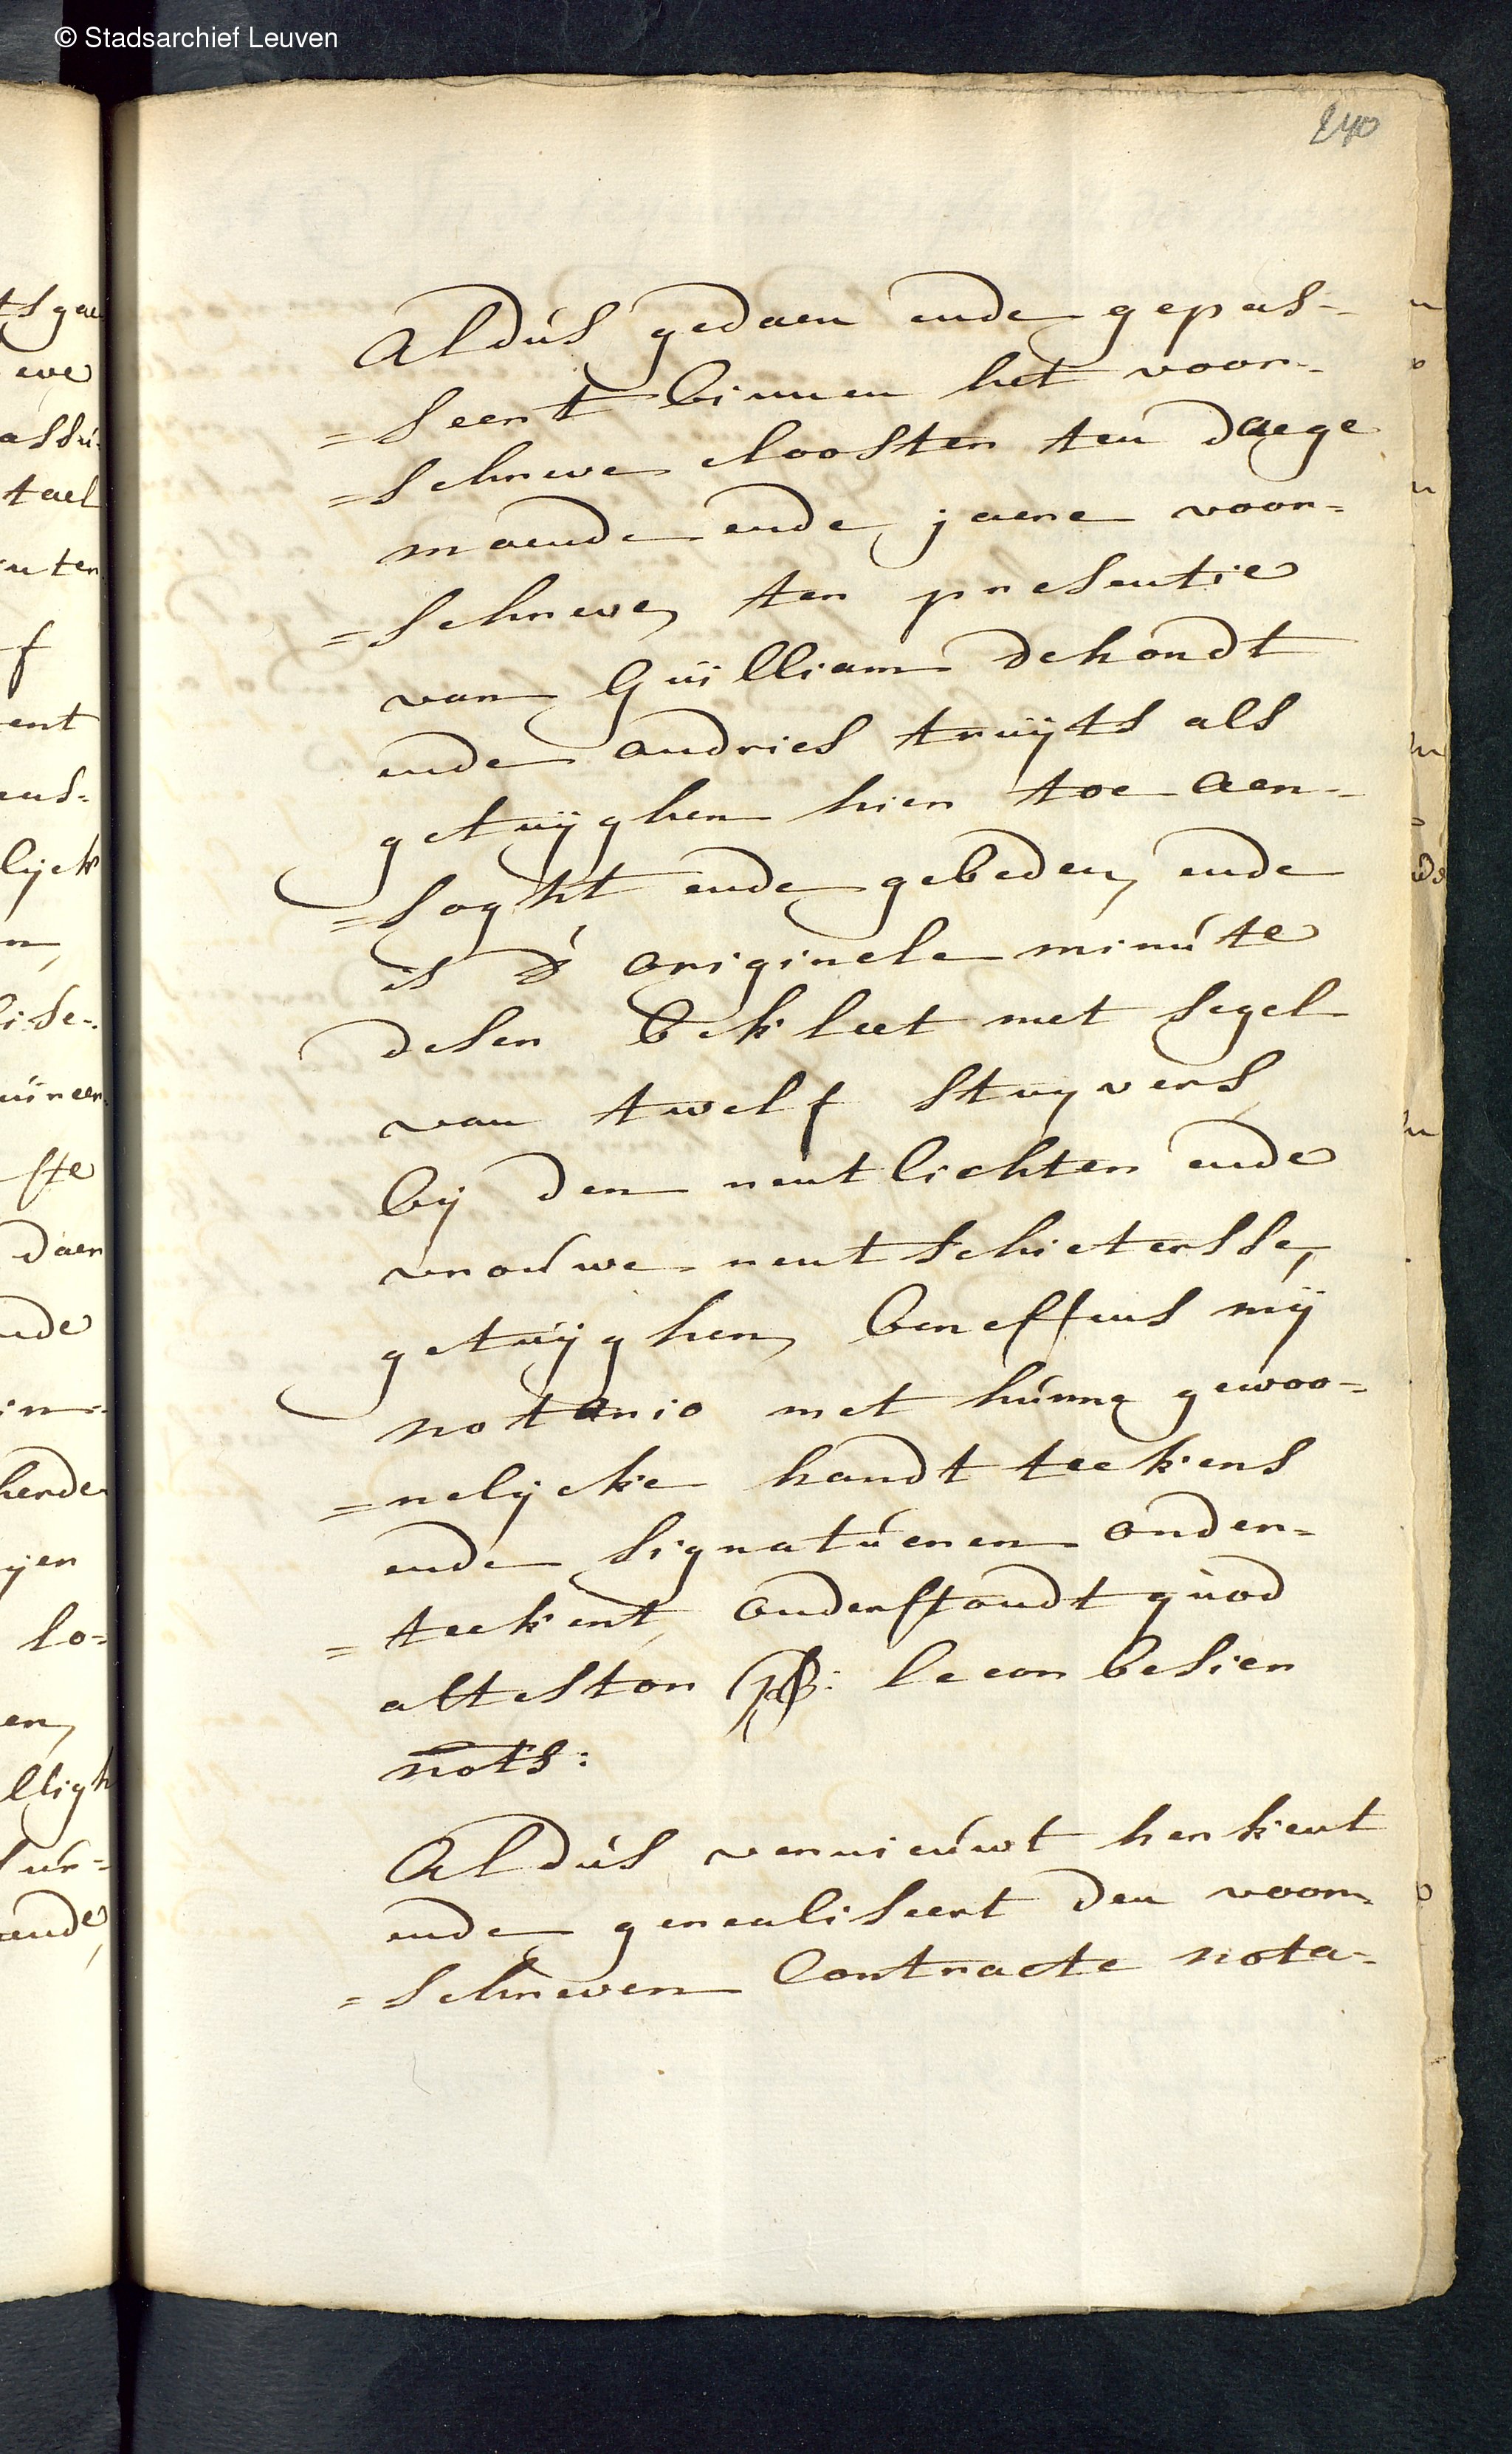 © Stadsarchief Leuven
240
Aldús gedaen ende gepas-
=seert binnen het voor-
=schreve clooster ten daege
maende ende jaere voor=
=schreve, ter presentie
van Guilliam Dehondt
ende andries truÿts als
getuÿghen hier toe aen-
=soght ende gebeden, ende
is d' originele minúte
deser bekleet met segel
van twelf stuyvers
bÿ den rentlichter ende
vroúwe rentschietersse,
getuÿghen, beneffens mÿ
notario met húnne gewoo-
=nelÿcke handt teekens
ende signatúeren onder=
=teekent, onderstondt quod
attestor leeonbesien
nots:
Aldús vernieúwt herkent
ende gerealiseert den voor-
=schreven Contracte nota-